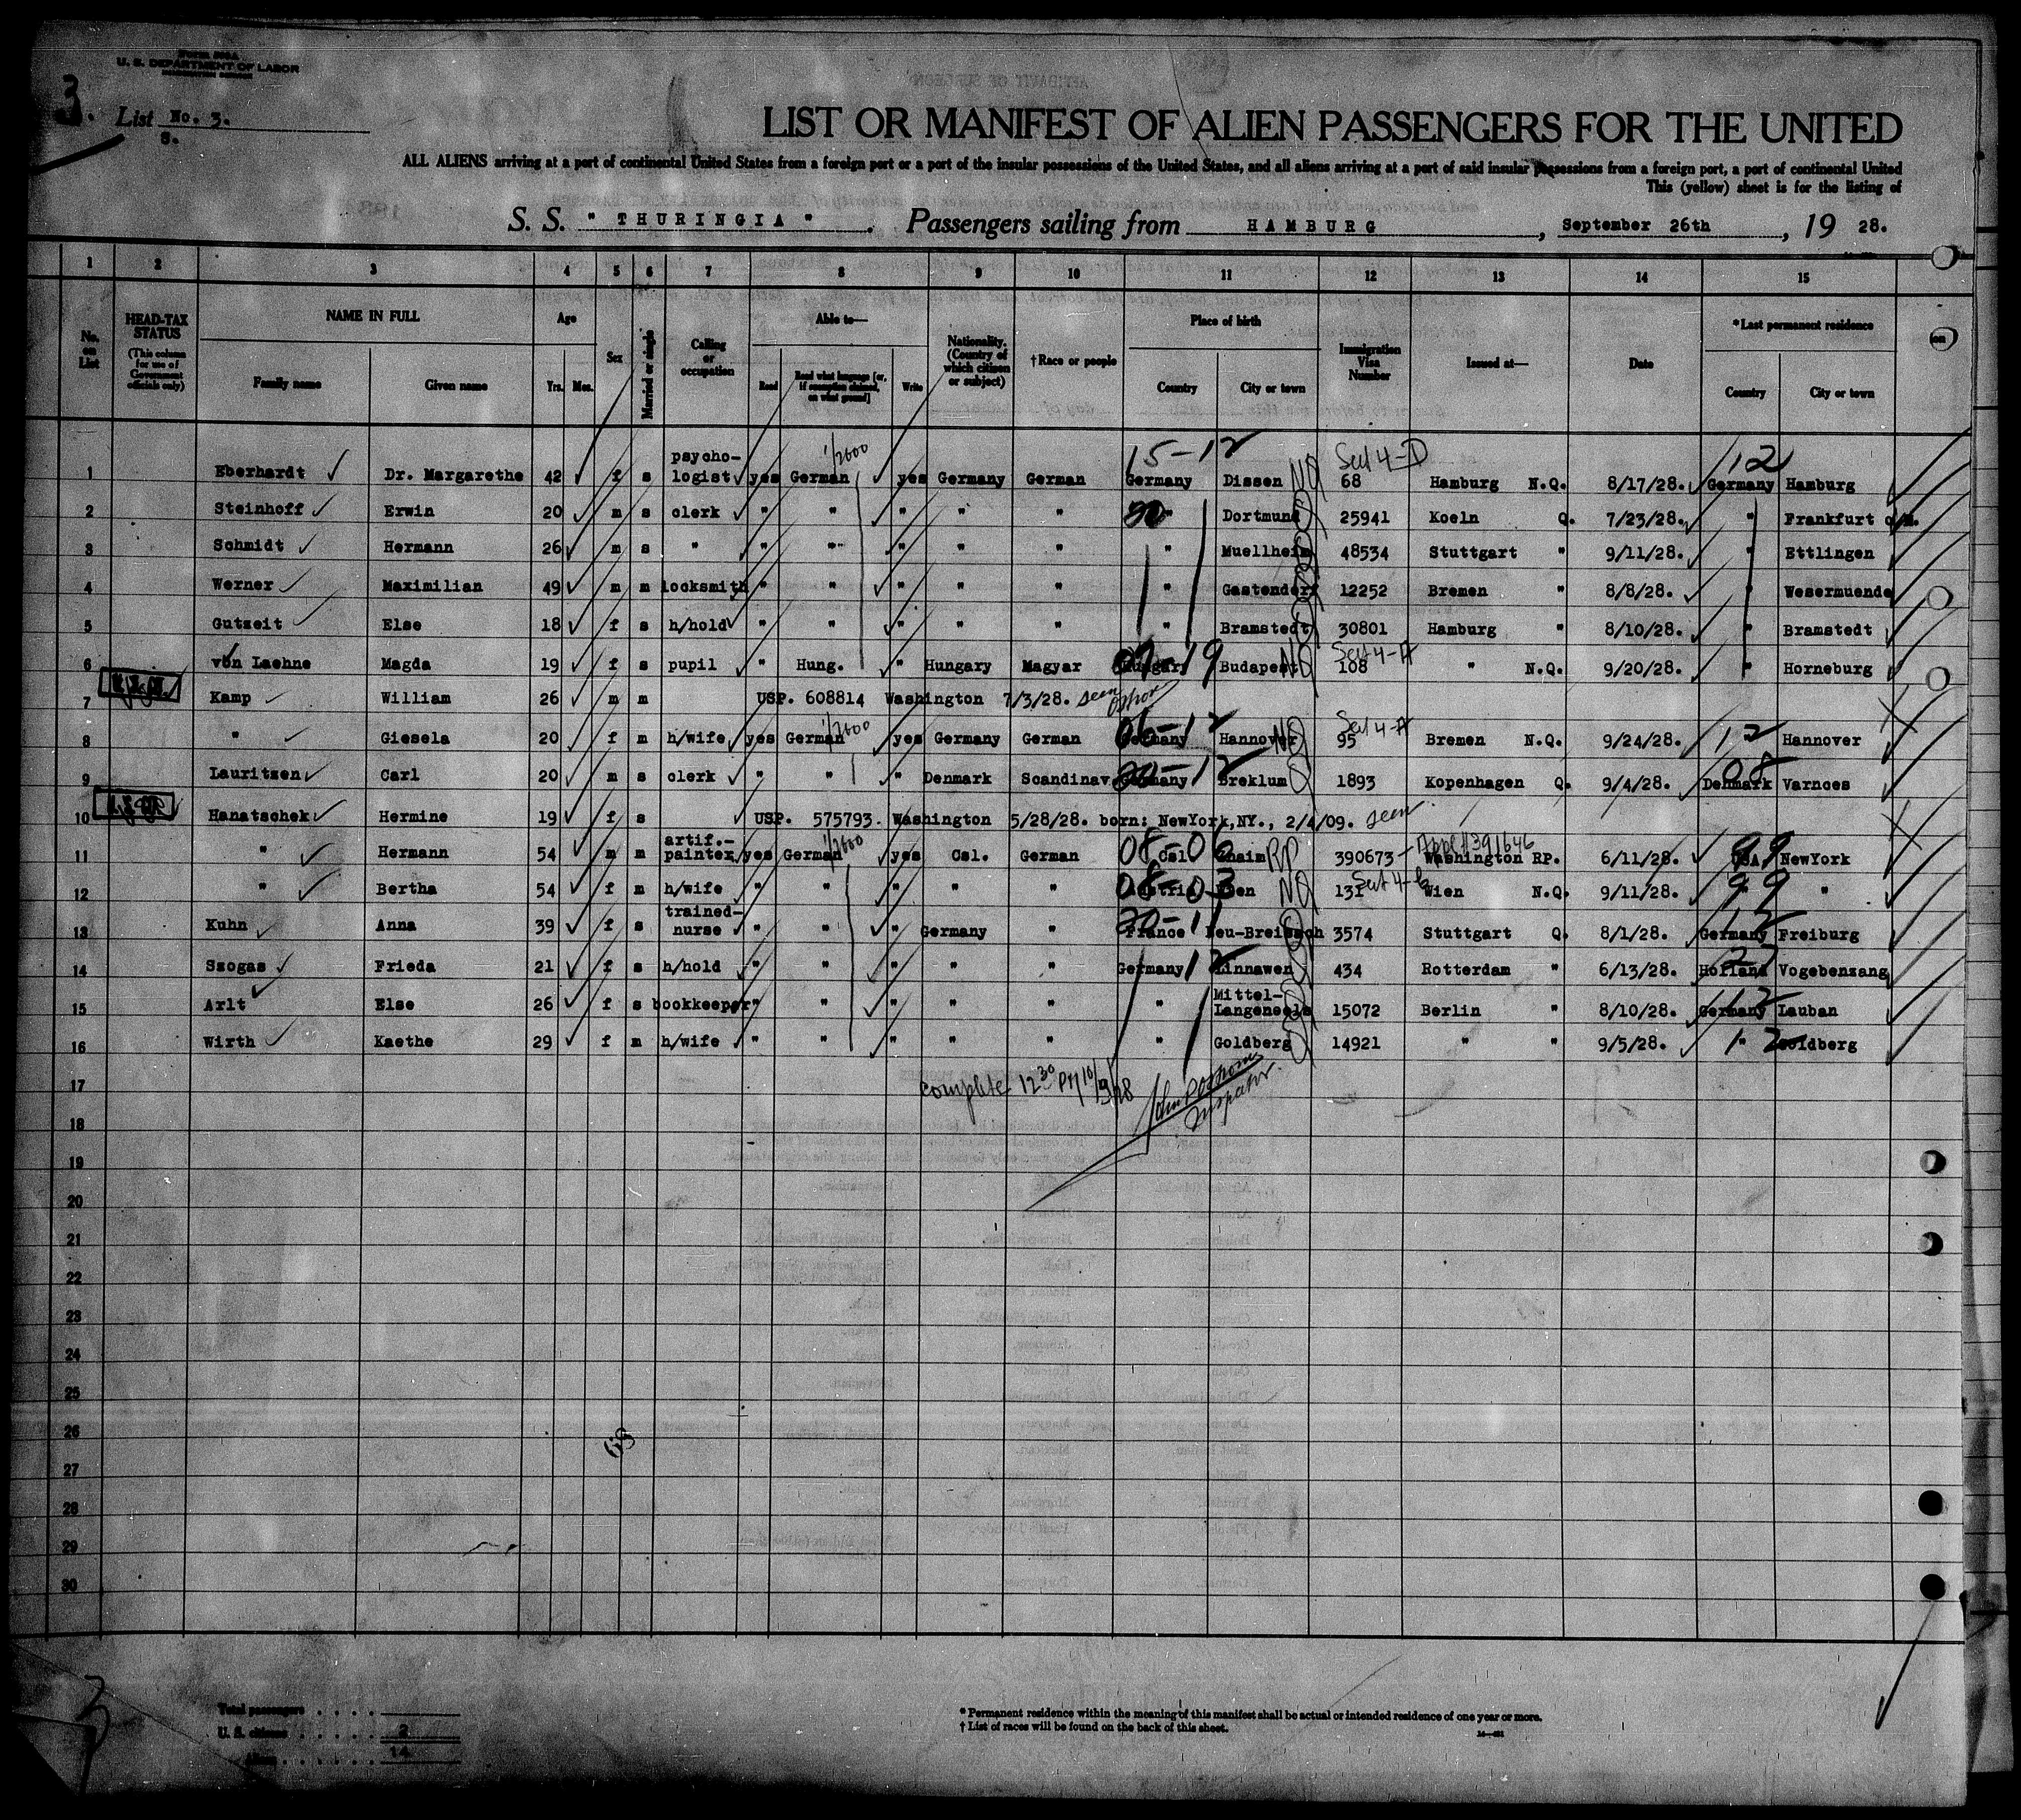 Form 500A
U. S. DEPARTMENT OF LABOR
IMMIGRATION SERVICE
3.
List No. 3.
S.
LIST OR MANIFEST OF ALIEN PASSENGERS FOR THE UNITED
ALL ALIENS arriving at a port of continental United States from a foreign port or a port of the insular possessions of the United States, and all aliens arriving at a port of said insular possessions from a foreign port, a port of continental United
This (yellow) sheet is for the listing of
S. S. " THURINGIA " . Passengers sailing from HAMBURG , September 26th , 19 28.
1 2 3 4 5 6 7 8 9 10 11 12 13 14 15
No. on List
HEAD-TAX STATUS (This column for use of Government officials only)
NAME IN FULL Family name Given name
Age Yrs. Mos.
Sex
Married or single
Calling or occupation
Able to— Read Read what language [or, if exemption claimed, on what ground] Write
Nationality. (Country of which citizen or subject)
†Race or people
Place of birth Country City or town
Immigration Visa Number
Issued at—
Date
*Last permanent residence Country City or town
15-12 Sect 4-D 12
1 Eberhardt Dr. Margarethe 42 f s psycho-logist yes German yes Germany German Germany Dissen NQ 68 Hamburg N.Q. 8/17/28. Germany Hamburg
2 Steinhoff Erwin 20 m s clerk " " " " " " Dortmund 25941 Koeln Q. 7/23/28. " Frankfurt o/M.
3 Schmidt Hermann 26 m s " " " " " " " Muellheim 48534 Stuttgart " 9/11/28. " Ettlingen
4 Werner Maximilian 49 m m locksmith " " " " " " Gastendorf 12252 Bremen " 8/8/28. " Wesermuende
5 Gutzeit Else 18 f s h/hold " " " " " " Bramstedt 30801 Hamburg " 8/10/28. " Bramstedt
6 von Laehne Magda 19 f s pupil " Hung. " Hungary Magyar Hungary Budapest NQ 108 Sect 4-A " N.Q. 9/20/28. " Horneburg
7 Kamp William 26 m m USP. 608814 Washington 7/3/28. seen
8 " Giesela 20 f m h/wife yes German yes Germany German Germany 06-12 Hannover NQ 95 Sect 4-A Bremen N.Q. 9/24/28. 12 Hannover
9 Lauritzen Carl 20 m s clerk " " " Denmark Scandinav. Germany 20-12 Breklum 1893 Kopenhagen Q. 9/4/28. Denmark 08 Varnoes
10 Hanatschek Hermine 19 f s USP. 575793. Washington 5/28/28. born: NewYork,NY., 2/4/09. seen
11 " Hermann 54 m m artif.-painter yes German yes Csl. German Csl. 08-06 RP 390673 Appl #391646 Washington RP. 6/11/28. USA. 99 NewYork
12 " Bertha 54 f m h/wife " " " " " Austria 08-03 Wien NQ 131 Wien N.Q. 9/11/28. 99 "
13 Kuhn Anna 39 f s trained-nurse " " " Germany " France 20-11 Neu-Breisach 3574 Stuttgart Q. 8/1/28. Germany 12 Freiburg
14 Szogas Frieda 21 f s h/hold " " " " " Germany 12 Linnawen 434 Rotterdam " 6/13/28. Holland Vogebenzang
15 Arlt Else 26 f s bookkeeper " " " " " " Mittel-Langenoels 15072 Berlin " 8/10/28. Germany 12 Lauban
16 Wirth Kaethe 29 f m h/wife " " " " " " Goldberg 14921 " " 9/5/28. " 12 Goldberg
17
complete 12 30 PM 10/9/28
Inspector.
18
19
20
21
22
23
24
25
26
27
28
29
30
Total passengers
U. S. citizens 2
Aliens 14
* Permanent residence within the meaning of this manifest shall be actual or intended residence of one year or more.
† List of races will be found on the back of this sheet.